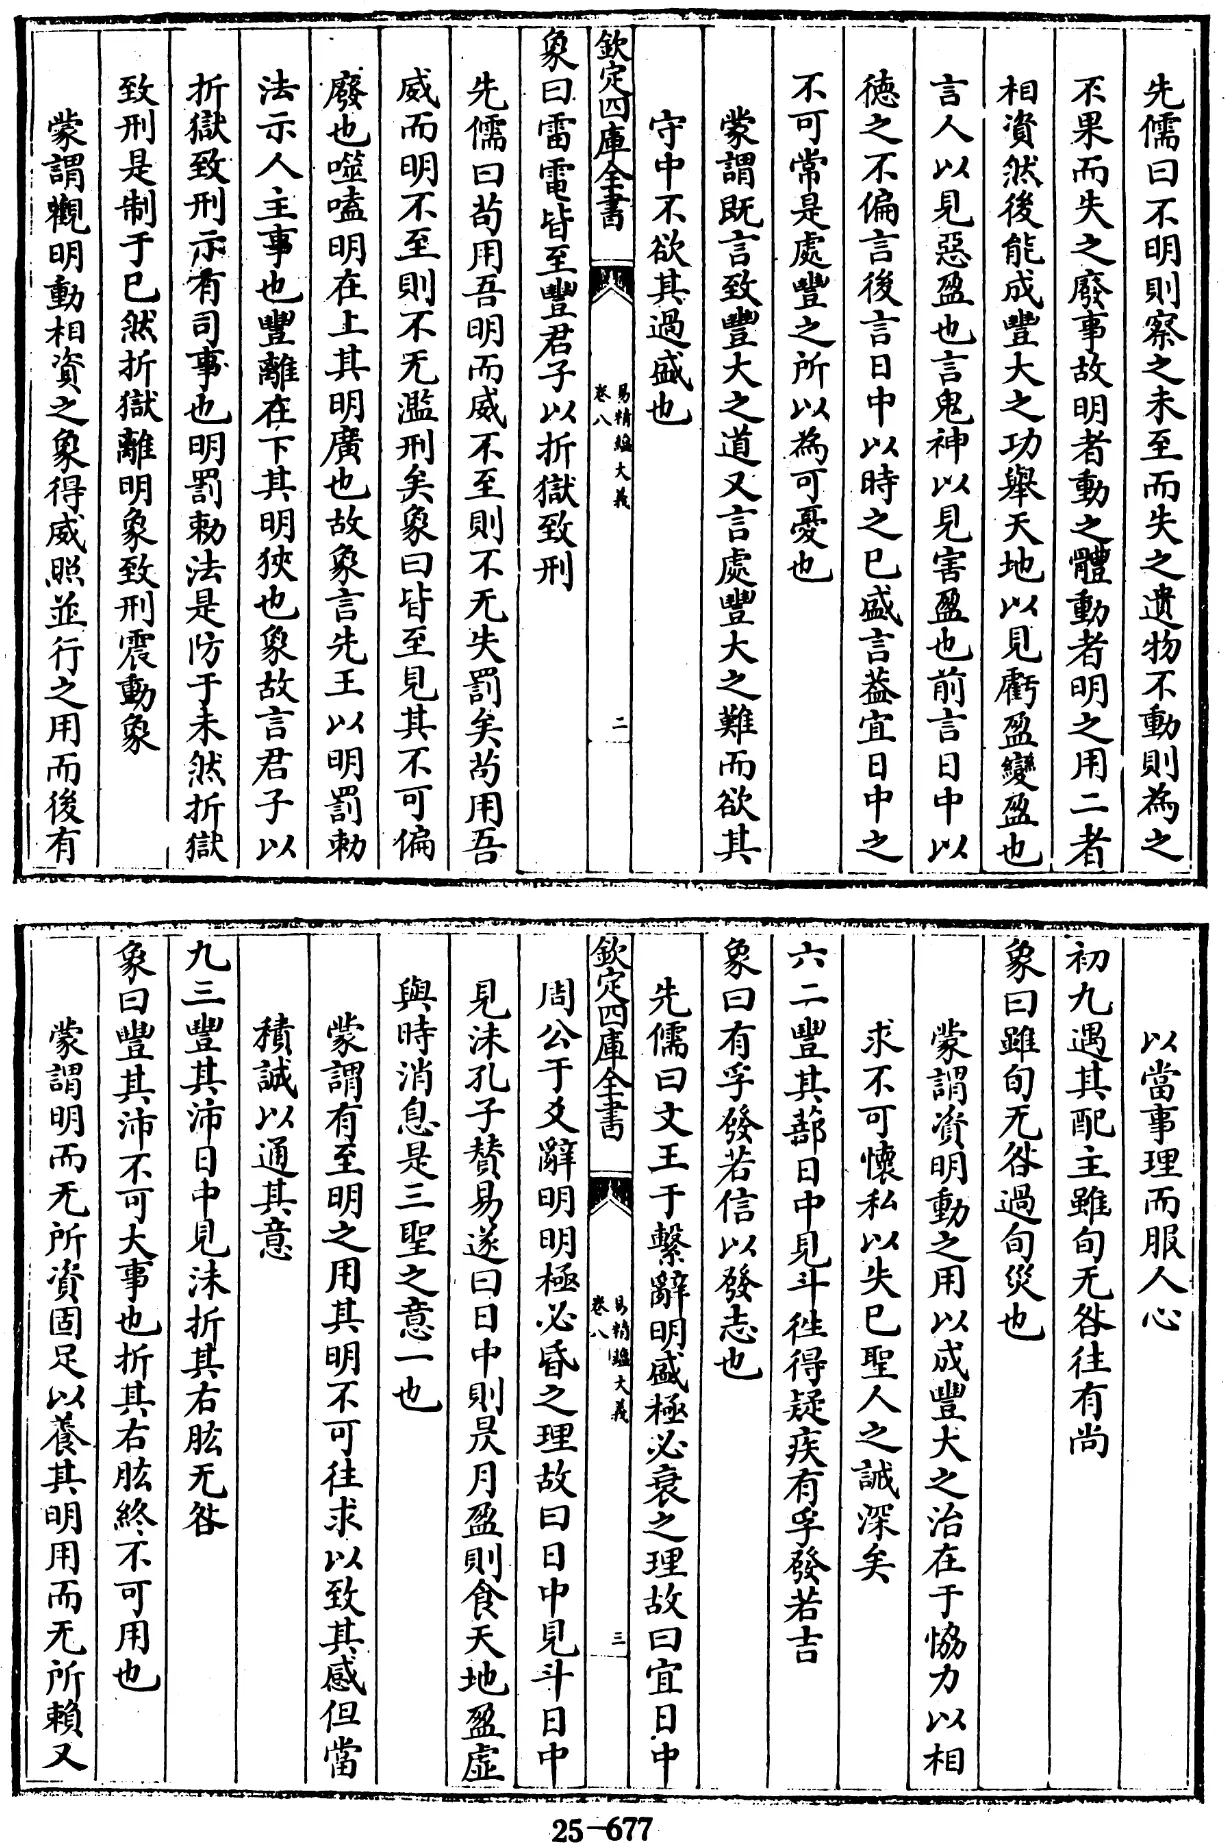 先儒曰不明則察之未至而失之遺物不動則為之
不果而失之廢事故明者動之體動者明之用二者
相資然後能成豐大之功舉天地以見虧盈變盈也
言人以見惡盈也言鬼神以見害盈也前言日中以
德之不偏言後言日中以時之已盛言葢宜日中之
不可常是處豐之所以為可憂也
蒙謂既言致豐大之道又言處豐大之難而欲其
守中不欲其過盛也
欽定四庫全書
易精蘊大義
卷八
二
象曰雷電皆至豐君子以折獄致刑
先儒曰茍用吾明而威不至則不无失罰矣茍用吾
威而明不至則不无濫刑矣象曰皆至見其不可偏
廢也噬嗑明在上其明廣也故象言先王以明罰勅
法示人主事也豐離在下其明狹也象故言君子以
折獄致刑示有司事也明罰勅法是防于未然折獄
致刑是制于已然折獄離明象致刑震動象
蒙謂觀明動相資之象得威照並行之用而後有
以當事理而服人心
初九遇其配主雖旬无咎往有尚
象曰雖旬无咎過旬災也
蒙謂資明動之用以成豐大之治在于恊力以相
求不可懷私以失已聖人之誠深矣
六二豐其蔀日中見斗徃得疑疾有孚發若吉
象曰有孚發若信以發志也
先儒曰文王于繫辭明盛極必衰之理故曰宜日中
欽定四庫全書
易精蘊大義
卷八
三
周公于爻辭明明極必昏之理故曰日中見斗日中
見沬孔子賛易遂曰日中則昃月盈則食天地盈虛
與時消息是三聖之意一也
蒙謂有至明之用其明不可往求以致其感但當
積誠以通其意
九三豐其沛日中見沬折其右肱无咎
象曰豐其沛不可大事也折其右肱終不可用也
蒙謂明而无所資固足以養其明用而无所賴又
25-677